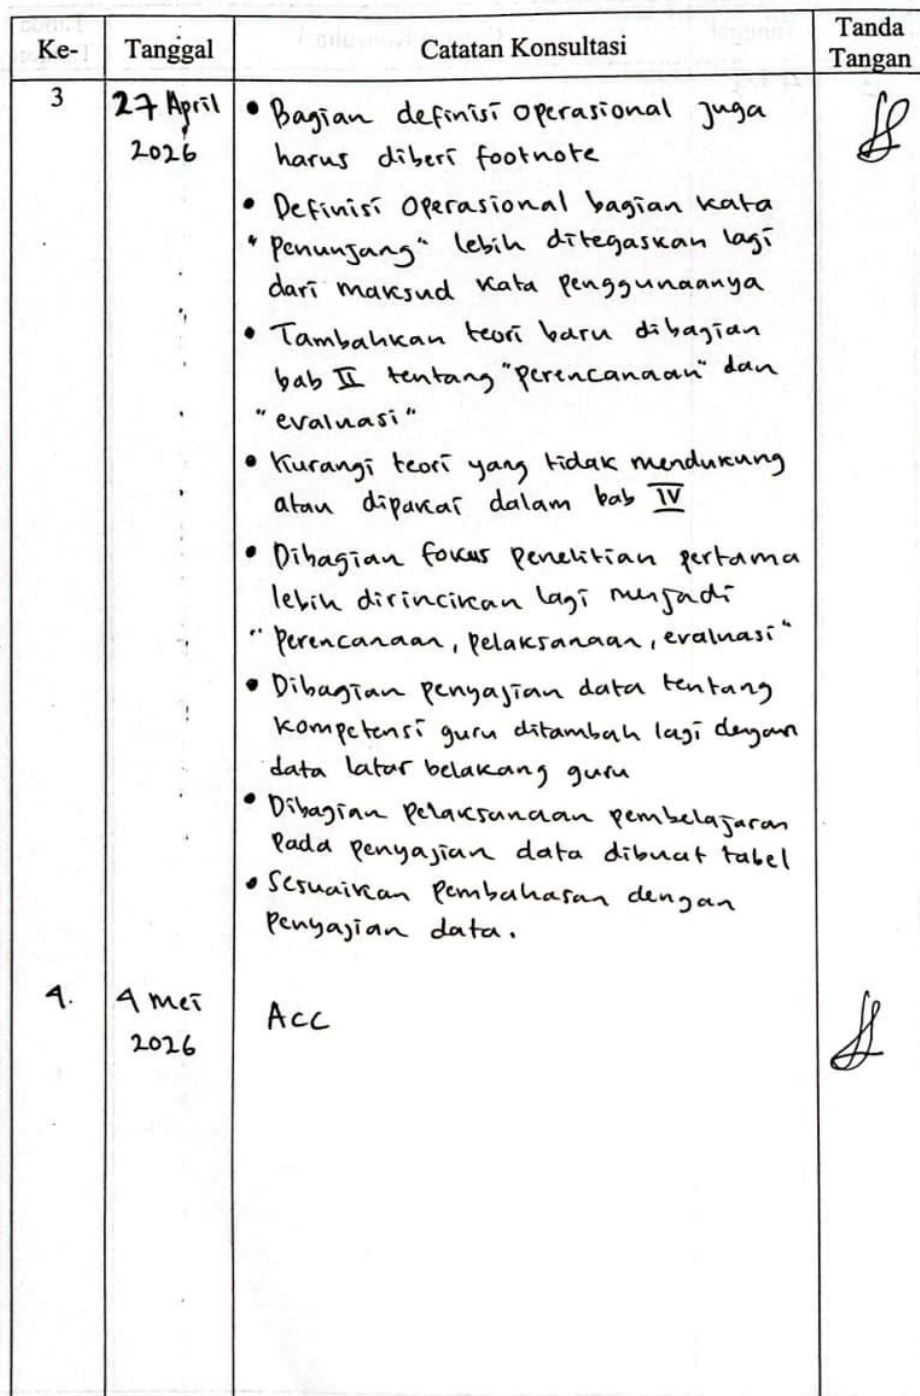 Ke-
Tanggal
Catatan Konsultasi
Tanda
Tangan
3
27 April
2026
• Bagian definisi operasional juga
harus diberi footnote
• Definisi Operasional bagian kata
"Penunjang" lebih ditegaskan lagi
dari maksud kata penggunaanya
• Tambahkan teori baru dibagian
bab II tentang "perencanaan" dan
"evaluasi"
• Kurangi teori yang tidak mendukung
atau dipakai dalam bab IV
• Dibagian fokus penelitian pertama
lebih dirincikan lagi menjadi
"Perencanaan, pelaksanaan, evaluasi"
• Dibagian penyajian data tentang
kompetensi guru ditambah lagi dengan
data latar belakang guru
• Dibagian pelaksanaan pembelajaran
Pada penyajian data dibuat tabel
• Sesuaikan Pembahasan dengan
Penyajian data.
4.
4 Mei
2026
Acc